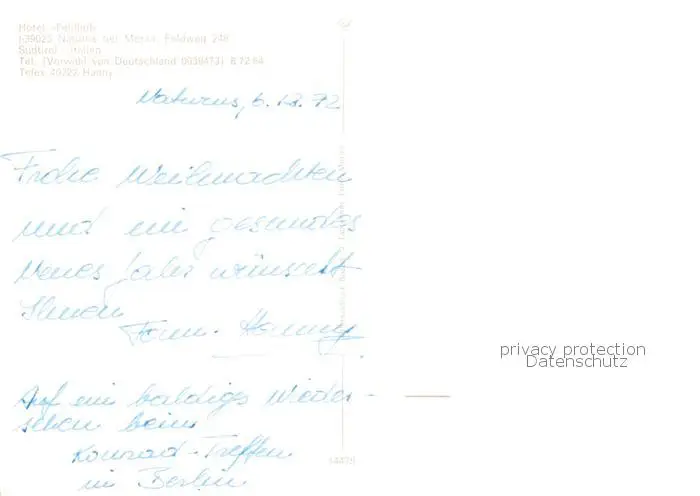 Hotel »Feldhof«
I-39025 Naturns bei Meran, Feldweg 248
Südtirol - Italien
Tel. (Vorwahl von Deutschland 0039473) 8 72 64
Telex 40222 Hanny
Naturns, 6. 12. 72
Frohe Weihnachten
und ein gesundes
Neues Jahr wünscht
Ihnen
Fam. Hanny
Auf ein baldiges Wieder-
sehen beim
Konrad-Treffen
in Berlin
privacy protection
Datenschutz